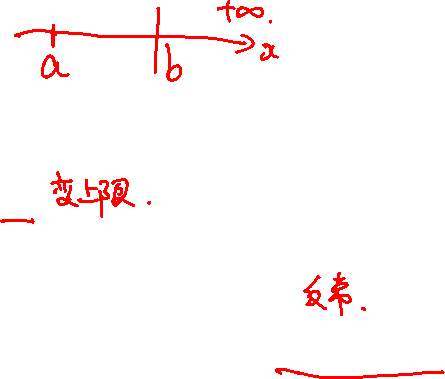 +∞.
a b x
变上限.
反常.